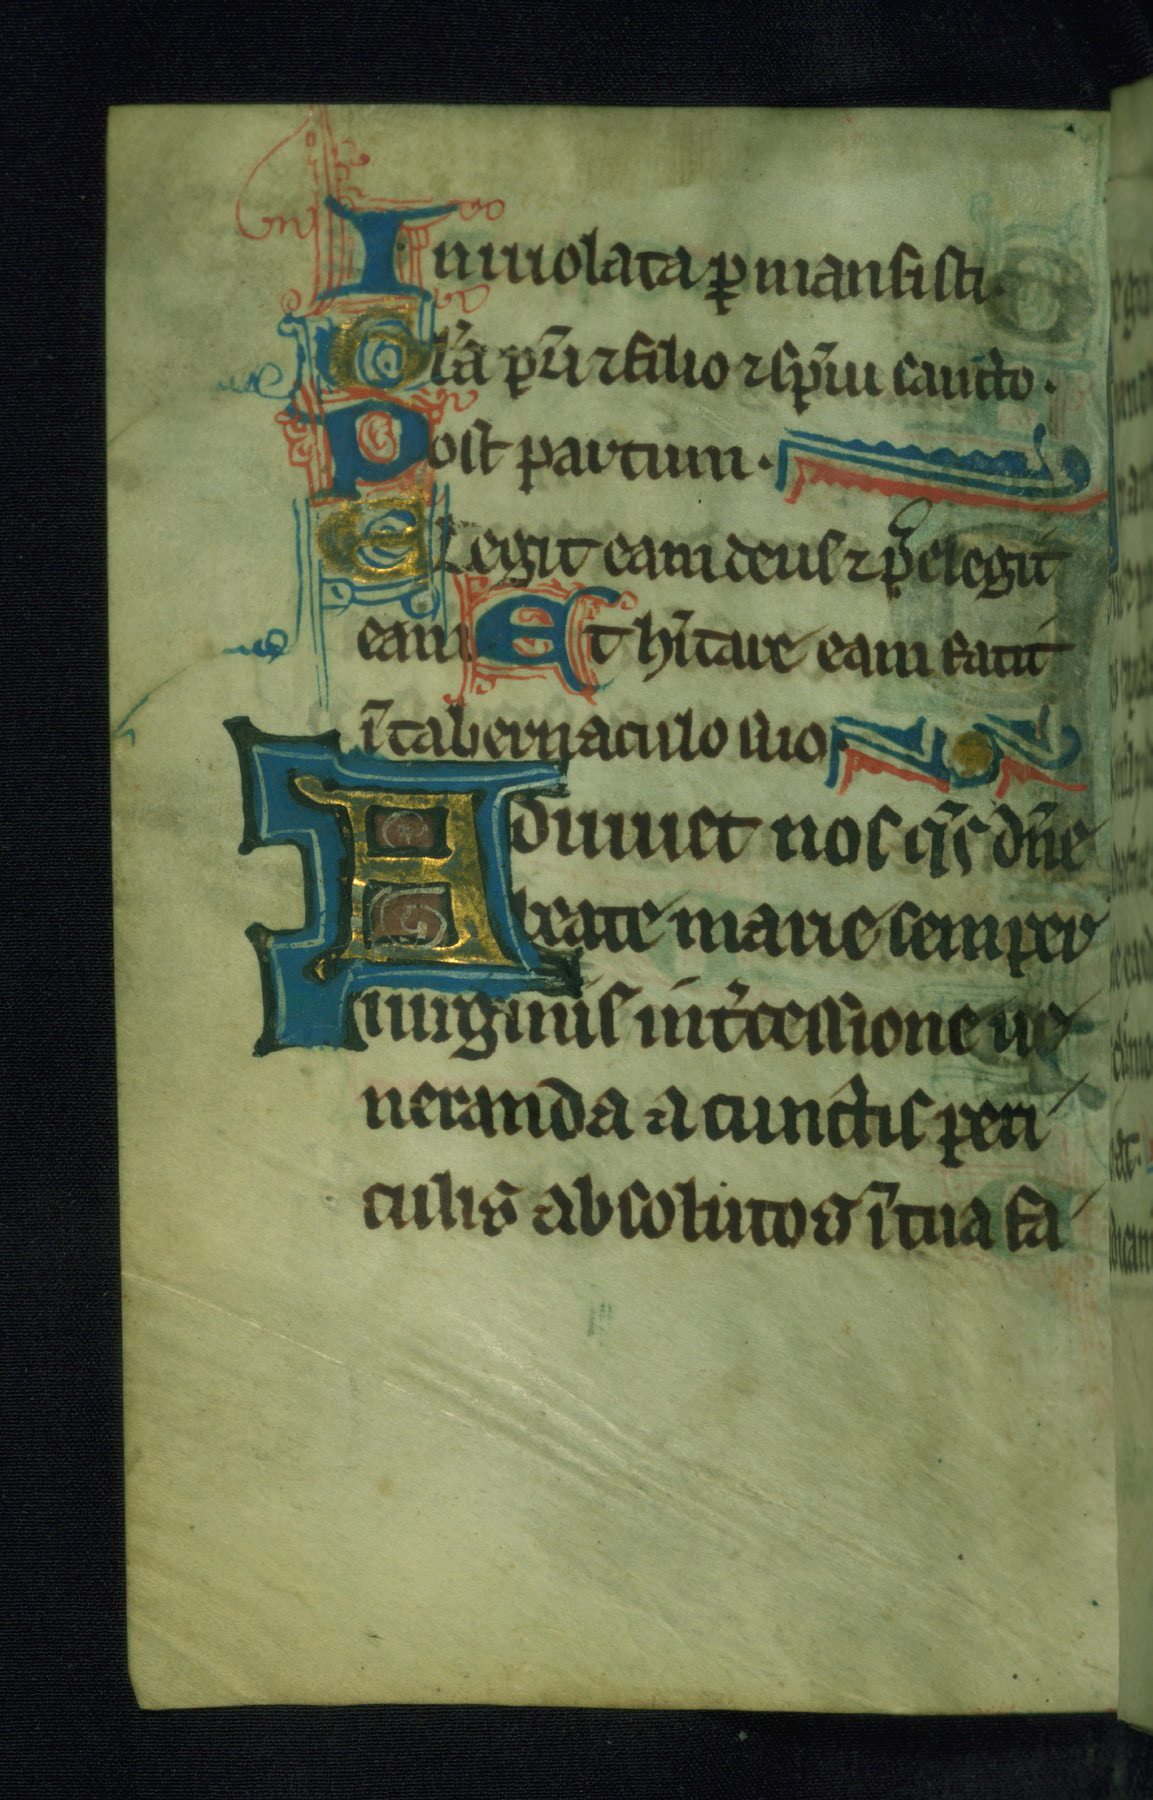 Inuiolata ꝑmansisti.
Gl̃a pr̃i ⁊ filio ⁊ sp̃iui sancto.
Post partum.
Elegit eam deus ⁊ p̃elegit
eam Et hĩtare eam facit
ĩ tabernaculo suo
Adiuuet nos qs̃ dñe
beate marie semper
uirginis int̃cessione ue
neranda a cunctis peri
culis absolutos ĩ tua fa